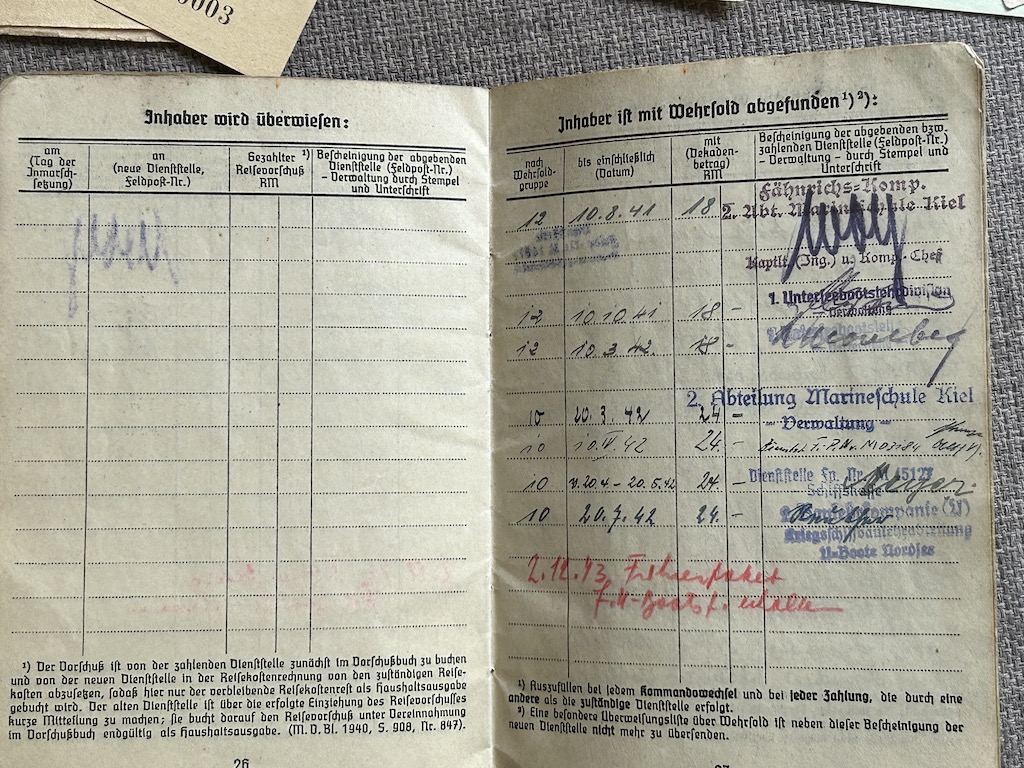 0003
Inhaber wird überwiesen:
am
(Tag der
Inmarsch-
setzung)
an
(neue Dienststelle,
Feldpost-Nr.)
Gezahlter ¹)
Reisevorschuß
RM
Bescheinigung der abgebenden
Dienststelle (Feldpost-Nr.)
- Verwaltung durch Stempel
und Unterschrift
¹) Der Vorschuß ist von der zahlenden Dienststelle zunächst im Vorschußbuch zu buchen
und von der neuen Dienststelle in der Reisekostenrechnung von den zuständigen Reise-
kosten abzusetzen, sodaß hier nur der verbleibende Reisekostenrest als Haushaltsausgabe
gebucht wird. Der alten Dienststelle ist über die erfolgte Einziehung des Reisevorschusses
kurze Mitteilung zu machen; sie bucht darauf den Reisevorschuß unter Vereinnahmung
im Vorschußbuch endgültig als Haushaltsausgabe. (M. D. Bl. 1940, S. 908, Nr. 847).
26
Inhaber ist mit Wehrsold abgefunden ¹) ²):
nach
Wehrsold-
gruppe
bis einschließlich
(Datum)
mit
(Dekaden-
betrag)
RM
Bescheinigung der abgebenden bzw.
zahlenden Dienststelle (Feldpost-Nr.)
- Verwaltung - durch Stempel und
Unterschrift
Fähnrichs-Komp.
12 10.8.41 18 2. Abt. Marineschule Kiel
Kaptlt. (Ing.) u. Komp.-Chef
1. Unterseebootslehrdivision
- Verwaltung -
12 10.10.41 18 -
12 10.3.42. 18 -
2. Abteilung Marineschule Kiel
10 20.3.42 24 - - Verwaltung -
10 10.IV.42 24. -
Dienststelle Fp. Nr. M 45127
10 v. 20.4 - 20.5.42 24. - Schiffskasse
10 20.7.42 24. -
Kriegsschiffbaulehrabteilung
U-Boote Nordsee
2.12.43, Führerpaket
f. U-Bootsf. erhalten
¹) Auszufüllen bei jedem Kommandowechsel und bei jeder Zahlung, die durch eine
andere als die zuständige Dienststelle erfolgt.
²) Eine besondere Überweisungsliste über Wehrsold ist neben dieser Bescheinigung der
neuen Dienststelle nicht mehr zu übersenden.